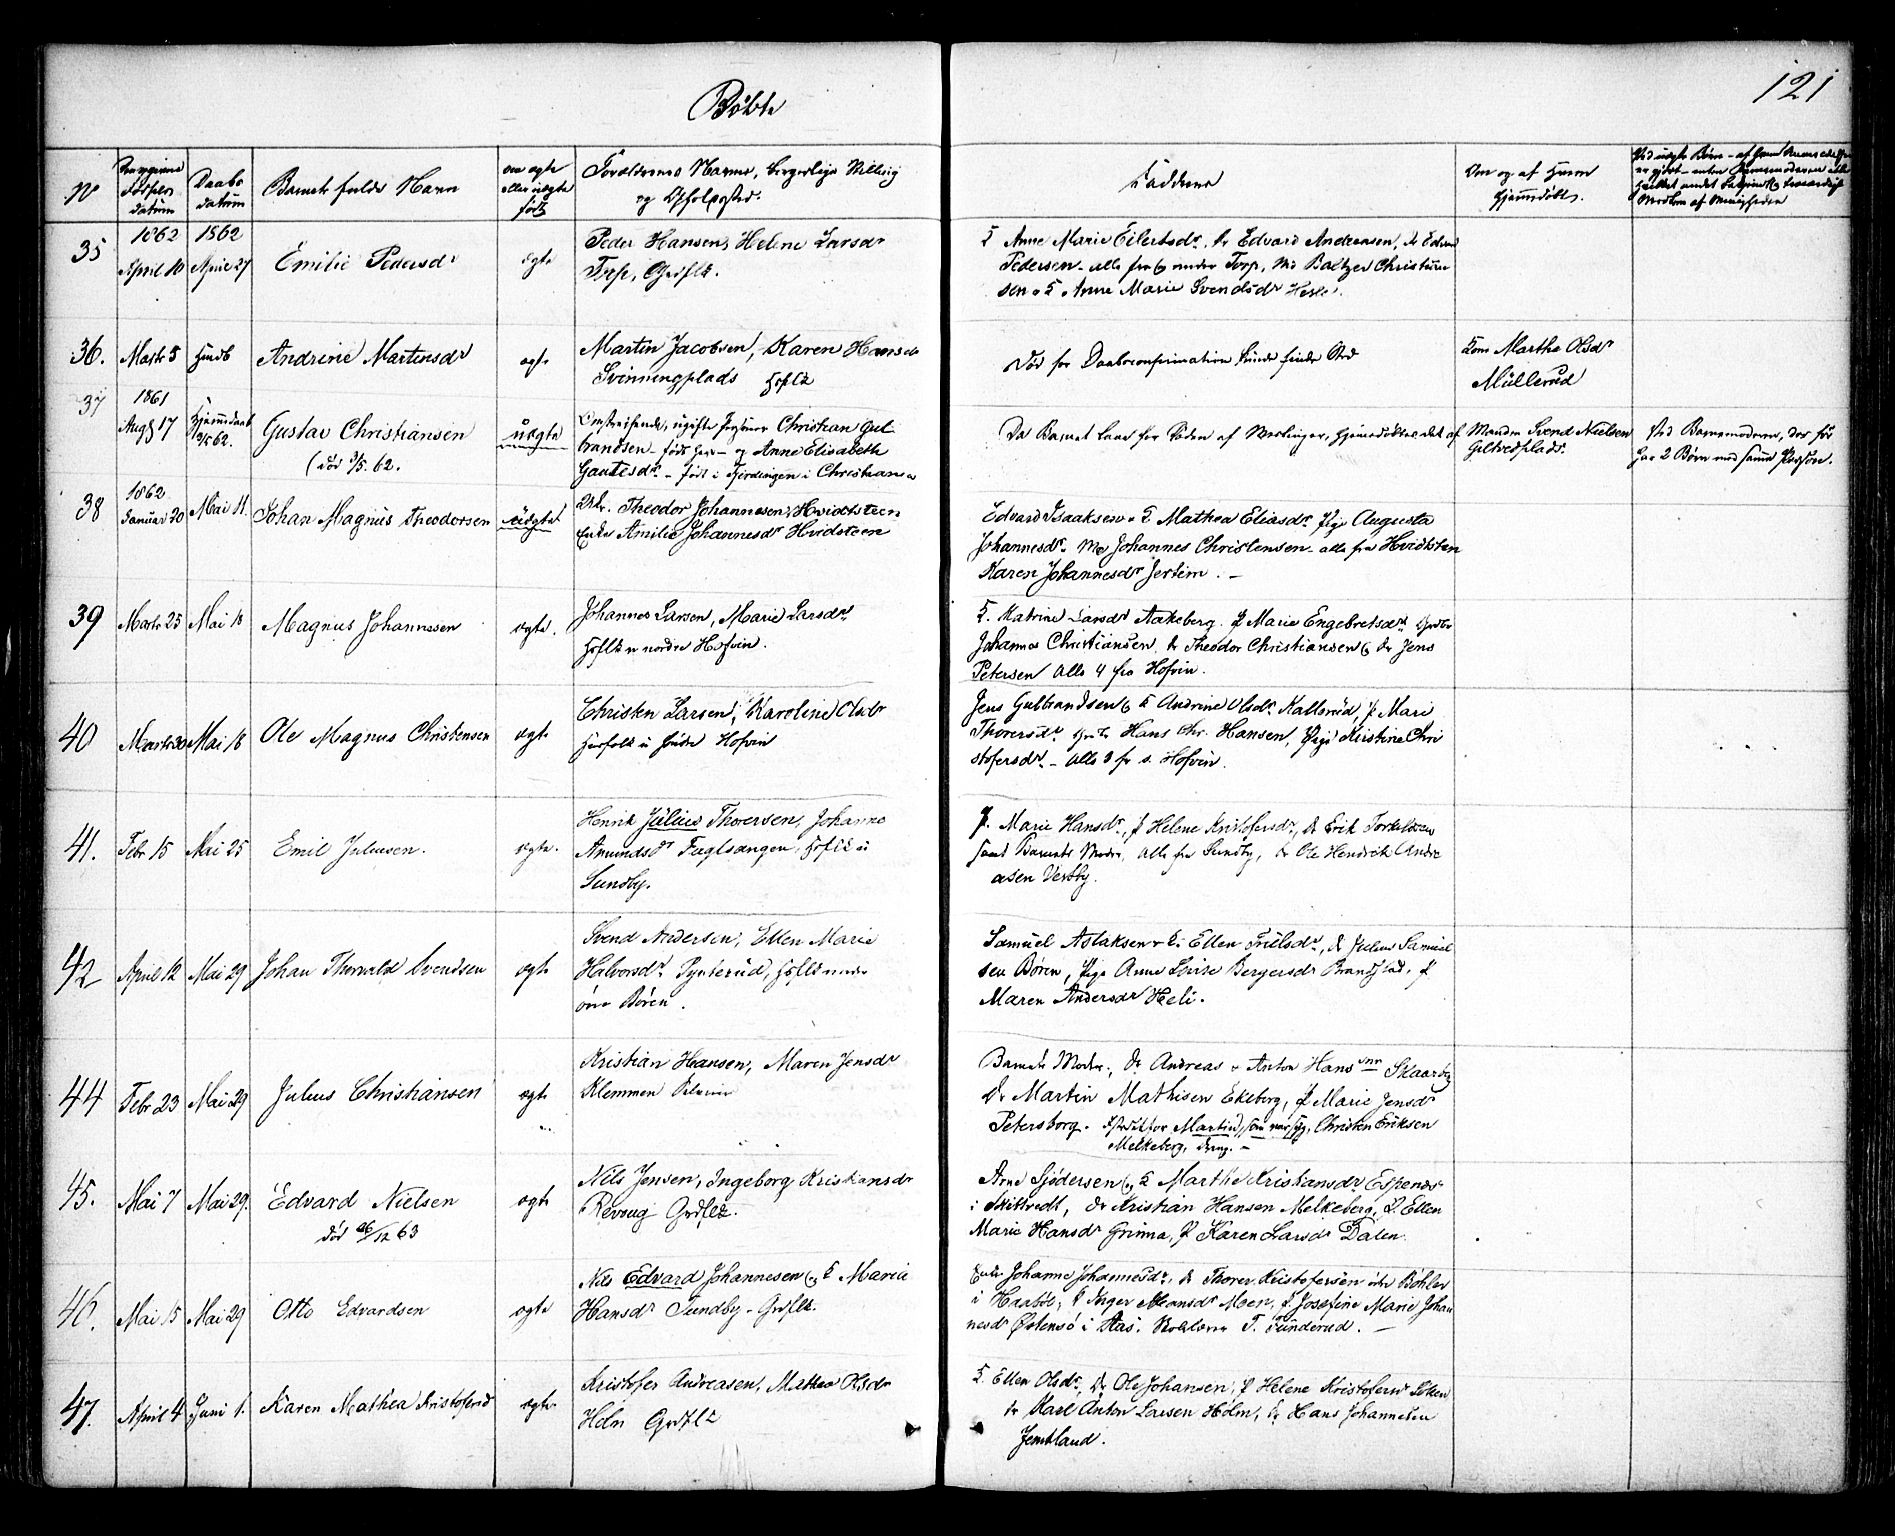 121
Döbte
No
Fødsels datum
Daabs datum
Barnets fulde Navn
om ægte eller uægte født
Forældrenes Navne, borgerlige Stilling og Opholdssted.
Faddere
Om og af Hvem hjemmedöbt.
35
1862
April 10
1862
April 27
Emilie Pedersdr
ægte
Peder Hansen, Helene Larsdr
Torp, Grdflk.
K Anne Marie Eilertsdr, Dr Edvard Andreasen, Dr Edvard
Pedersen - alle fra Torp, Baltzer Christian
sen o K Anne Marie Svendsdr
36.
Marts 5
Hmdb
Andrine Martinsdr
ægte
Martin Jacobsen, Karen Hansdr
Svinningplads Hsflk
Död för Daabsconfirmation kunde finde Sted
Kone Marthe Olsdr
Müllerud
37
1861
Augst 17
Hjemmedaab
62.
Gustav Christiansen
(död 3/5. 62.
uægte
Omstreifende, ugifte Personer Christian Gul
brandsen - født her - og Anne Elisabeth
Gautesdr - født i Fjerdingen i Christiania
Da Barnet laae for Döden af Meslinger, hjemmedöbtes det af
Manden Svend Nielsen
Ved Barnemoderen, der för
har 2 Börn med samme Person.
38
1862
Januar 30
Mai 11.
Johan Magnus Theodorsen
uægte
Theodor Johannesen Hvidtsteen
Enke Amilie Johannesdr Hvidsteen
Edvard Isaaksen o K Mathea Eliasdr Pige Augusta
Johannesdr. Johannes Christensen - alle fra Hvidsten
Karen Johannesdr Jertim. -
39
Marts 25
Mai 18
Magnus Johannesen
ægte.
Johannes Larsen, Marie Larsdr
Hsflk u nordre Hofvin.
K. Katrine Larsdr Aakeberg. P Marie Engebretsdr
Johannes Christiansen, Dr Theodor Christiansen og Dr Jens
Petersen alle 4 fra Hofvin.
40
Marts 30
Mai 18
Ole Magnus Christensen
ægte
Christen Larsen, Karoline Olsdr
Husfolk u söndre Hofvin
Jens Gulbrandsen og K Andrine Olsdr Kallerud, P Mari
Thorersdr, Hans Chr. Hansen, Pige Kirstine Chri
stofersdr - alle 3 fr s. Hofvin.
41.
Febr 15
Mai 25
Emil Juliussen.
ægte.
Henrik Julius Thoresen, Johanne
Amundsdr Fuglsangen, Hsflk u
Sundby.
P. Marie Hansdr, P Helene Kristofersdr, Dr Erik Torkeldsen
samt Barnets Moder, alle fra Sundby, Dr Ole Hendrik Andre
asen Vestby.
42
April 12
Mai 29
Johan Thorvald Svendsen
ægte
Svend Andersen, Ellen Marie
Halvorsdr Pynterud, Hsflk under
övre Bören.
Samuel Aslaksen o K Ellen Trulsdr, Dr Julius Samuel
sen Bören, Pige Anne Lovise Bergersdr, P
Maren Andersdr Heli.
44
Febr 23
Mai 29
Julius Christiansen
ægte
Kristian Hansen, Maren Jensdr
Klemmen
Barnets Moder, Dr Andreas o Anton Hans snr Skaarby
Dr Martin Mathisen Ekeberg, P Marie Jensdr
Petersborg. Istedetfor Martin, som var syg, Christen Eriksen
Melkeberg, -
45.
Mai 7
Mai 29.
Edvard Nielsen
död 26/12 63
ægte
Nils Jensen, Ingeborg Kristiansdr
Revoug Grdflk.
Arne Sjödersen og K Marthe Kristiansdr Espenæs
i Skibtvedt, Dr Kristian Hansen Melkeberg, P. Ellen
Marie Hansdr Grima, P Karen Larsdr Dalen.
46.
Mai 15
Mai 29
Otto Edvardsen
ægte
Nils Edvard Johannesen og K Marie
Hansdr Sundby - Grdflk.
Enke Johanne Johannesdr, Dr Thorer Kristofersen Böhler
i Haaböl, P Inger Hansdr Moen, P Josefine Marie Johan
nesdr Östensö i Aas. F. Funderud. -
47.
April 4
Juni 1.
Karen Mathea Kristofersd
ægte.
Kristofer Andreasen, Mathea Olsdr
Holm Grdflk
K. Ellen Olsdr, Dr Ole Johansen, P Helene Kristofersdr
Dr Karl Anton Larsen Holm, Dr Hans Johannesen
Jemtland.